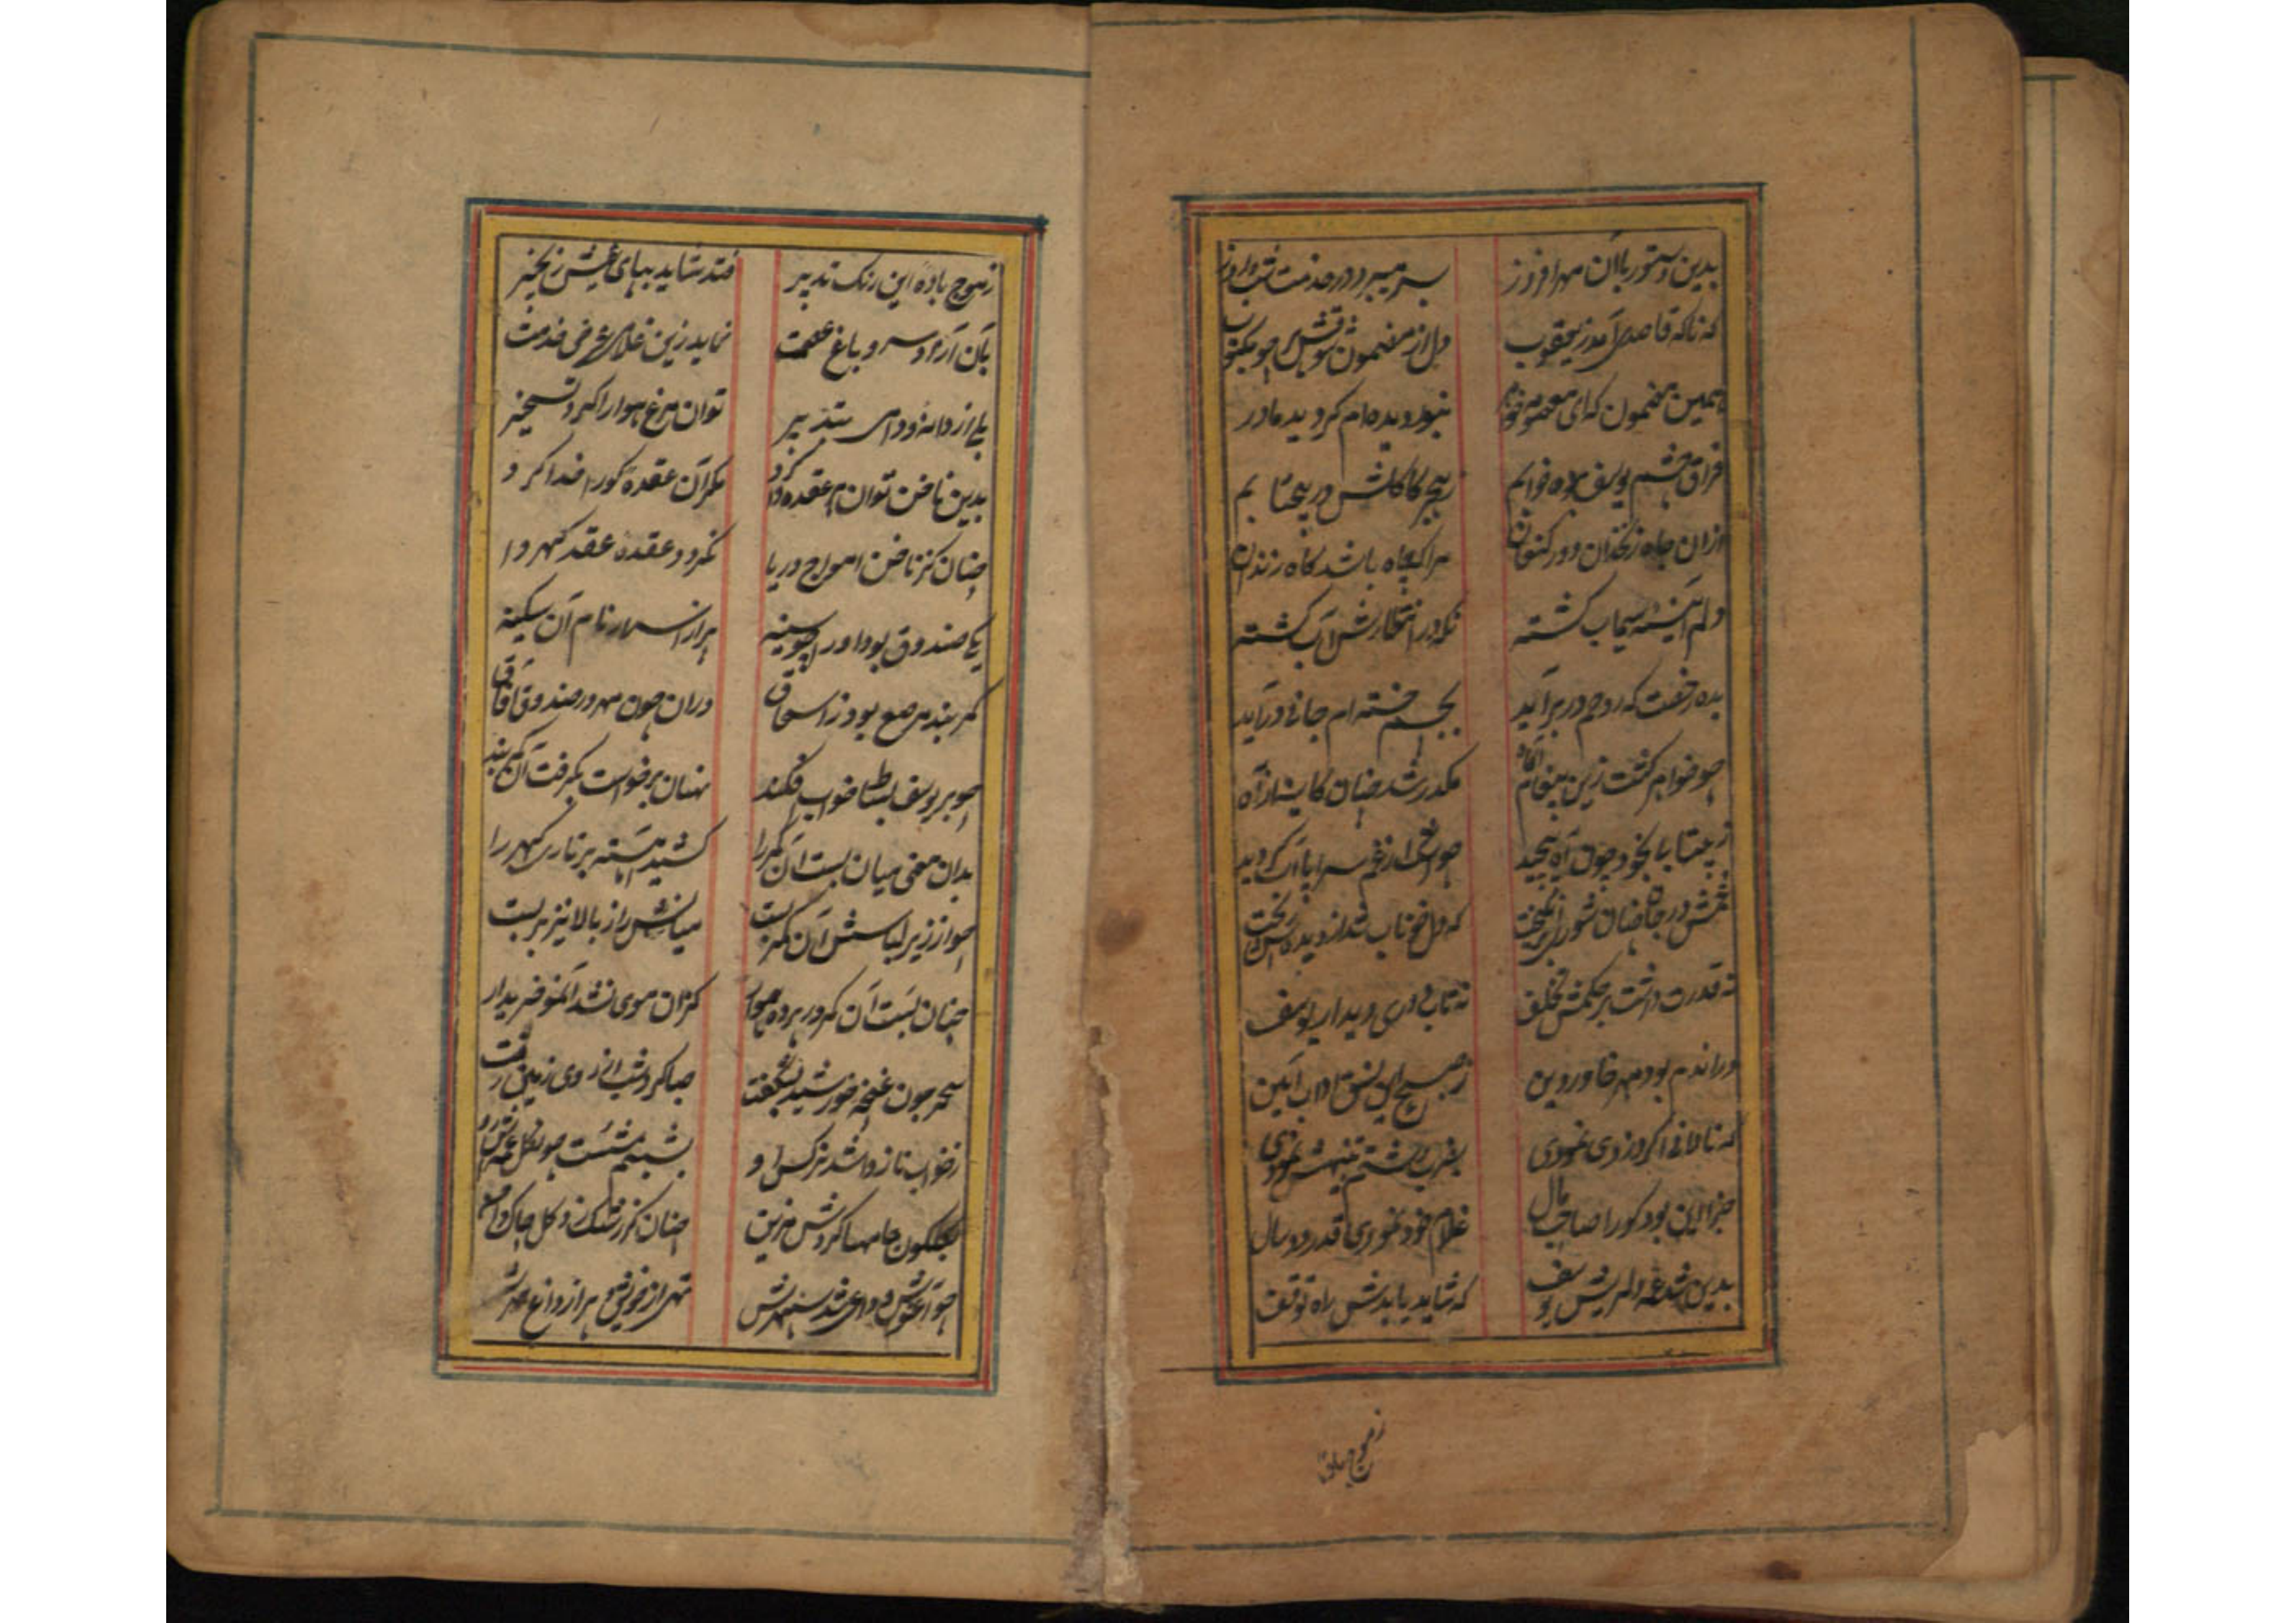 بدین دستور با آن مهر افروز بسر میبرد در خدمت شب و روز
که ناکه قاصدی آمد ز یعقوب دل از مضمون شوقش چو مکتوب
همین مضمون که ای معصومه خواهر بنور دیده‌ام کردیده مادر
فراق چشم یوسف برده خوابم بهجر کاکلش در پیچ تابم
ازان چاه زنخدان دور کنعان مرا که چاه باشد کاه زندان
دلم آئینه سیماب کشته نکه در انتظارش آب کشته
بده رخصت که روحم در بر آید بجسم خسته‌ام جانی در آید
چو خواهر کشت زین پیغام آکاه مکدر شد چنان کایینه از آه
ز بیتابی بخود چون آه پیچید چو شمع از غم سراپا آب کردید
غمش در جان چنان شور انکیخت که دل خوناب شد از دیده‌اش ریخت
نه قدرت داشت بر حکمش تخلف نه تاب دوری دیدار یوسف
در اندم بود مهر خاور دین ز صبح این نسق آداب آیین
که نادانی اکر دزدی نمودی بشرب چشم تنبیهش نمودی
جزا این بود کورا صاحب مال غلام خود نمودی قدر دو سال
بدین شد عمه دلریش یوسف که شاید یابدش راه توقف
ز موج باده
ز موج باده این رنک تدبیر فتد شاید بپای عیش زنجیر
بآن آزاد سرو باغ عصمت نماید زین غلامی عرض خدمت
بلی از دانه و دامی تدبیر توان مرغ هوا را کرد تسخیر
بدین ناخن توان هر عقده وا کرد مکر آن عقده کورا خدا کرد
چنان کز ناخن امواج دریا نکردد عقده عقد کهر وا
یکی صندوق بود او را چو سینه پر از اسرار نام آن سکینه
کمربند مرصع بود ز اسحاق دران چون مهر در صندوق آفاق
چو بر یوسف بساط خواب افکند نهان برخواست بکرفت آن کمربند
بدان معنی میان بست آن کمر را کشید آهسته بر تاری کهر را
چو از زیر لباسش آن کمر بست میانش را ز بالا نیز بر بست
چنان بست آن کمر در پرده هموار کزان موی نشد آن مو خبردار
سحر چون غنچه خورشید بشکفت صبا کرد شب از روی زمین رفت
ز خواب ناز وا شد نرکس او بشبنم شست چون کل عمه‌اش رو
بکلکون جامها کردش مزین چنان کز رشک زد کل چاک دامن
چو آغوش وداعی شد سفرش تهی از خویش پر از داغ مهرش